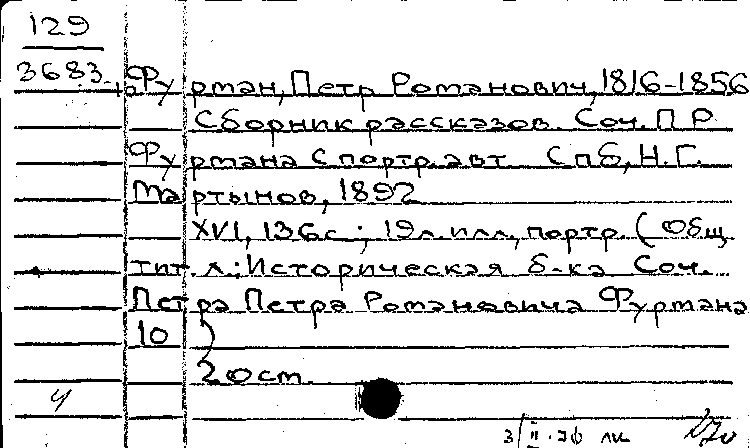 129
3683
Фурман, Петр Романович, 1816-1856
Сборник рассказов. Соч. П.Р.
Фурмана С портр. авт. Спб, Н.Г.
Мартынов, 1892
XVI, 136с.; 19л. илл., портр. (Общ.
тит. л.: Историческая б-ка Соч.
Петра Петра Романовича Фурмана
10 )
2 ост.